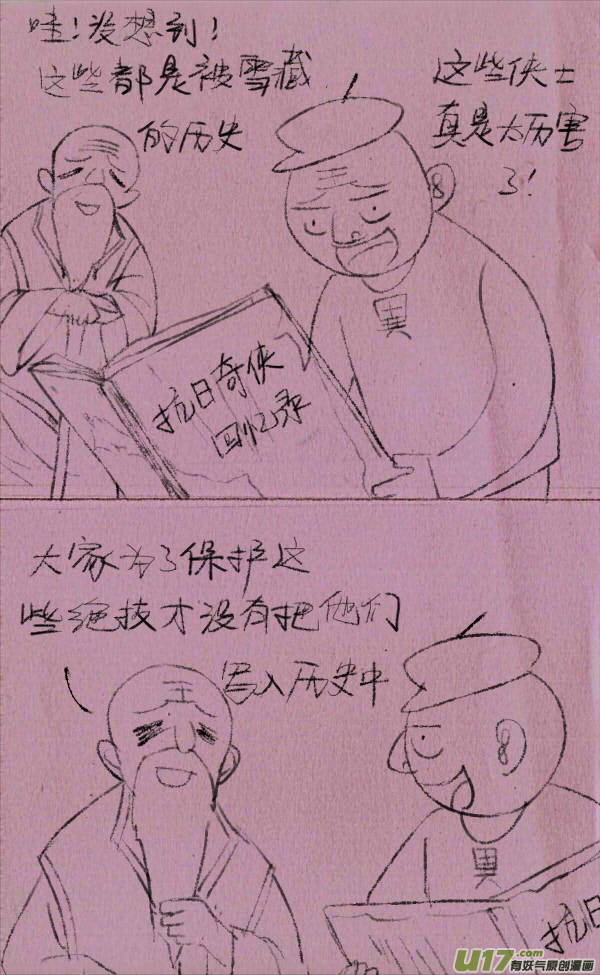 哇！没想到！
这些都是被雪藏
的历史
这些侠士
真是太厉害
了！
異
抗日奇侠
回忆录
大家为了保护这
些绝技才没有把他们
写入历史中
異
抗日
U17.com
有妖气原创漫画